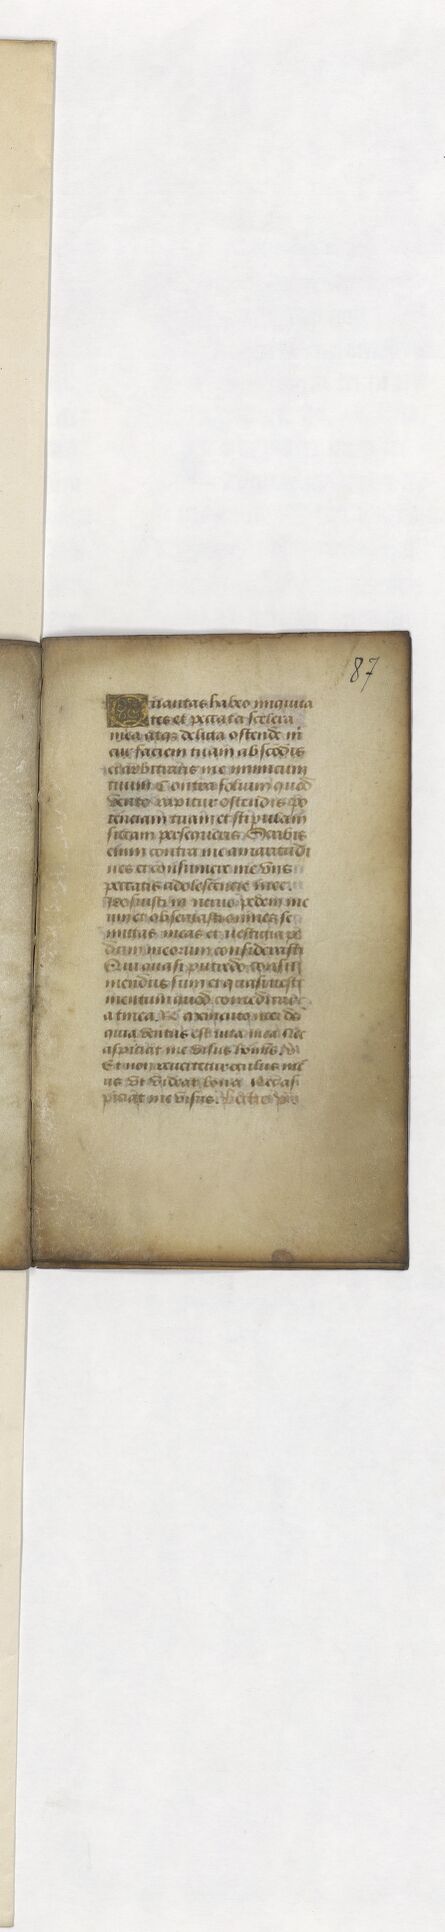 87
Quantas habeo iniquita
tes et peccata scelera
mea atqz delicta ostende m
cur faciem tuam abscodis
et arbitraris me inimicum
tuum Contra folium quod
vento rapitur ostendis po
tenciam tuam et stipulam
siccam persequeris Scribis
enim contra me amaritudi
nes et consumere me vis
peccatis adolescencie mee
Posuisti in nervo pedem me
um et observasti omnes se
mitas meas et vestigia pe
dum meorum considerasti
Qui quasi putredo consu
mendus sum et quasi vesti
mentum quod comeditur
a tinea memento mei de
quia ventus est vita mea Nec
aspiciat me visus
Et non revertetur oculus me
us Ut videat bona Nec as
piciat me visus